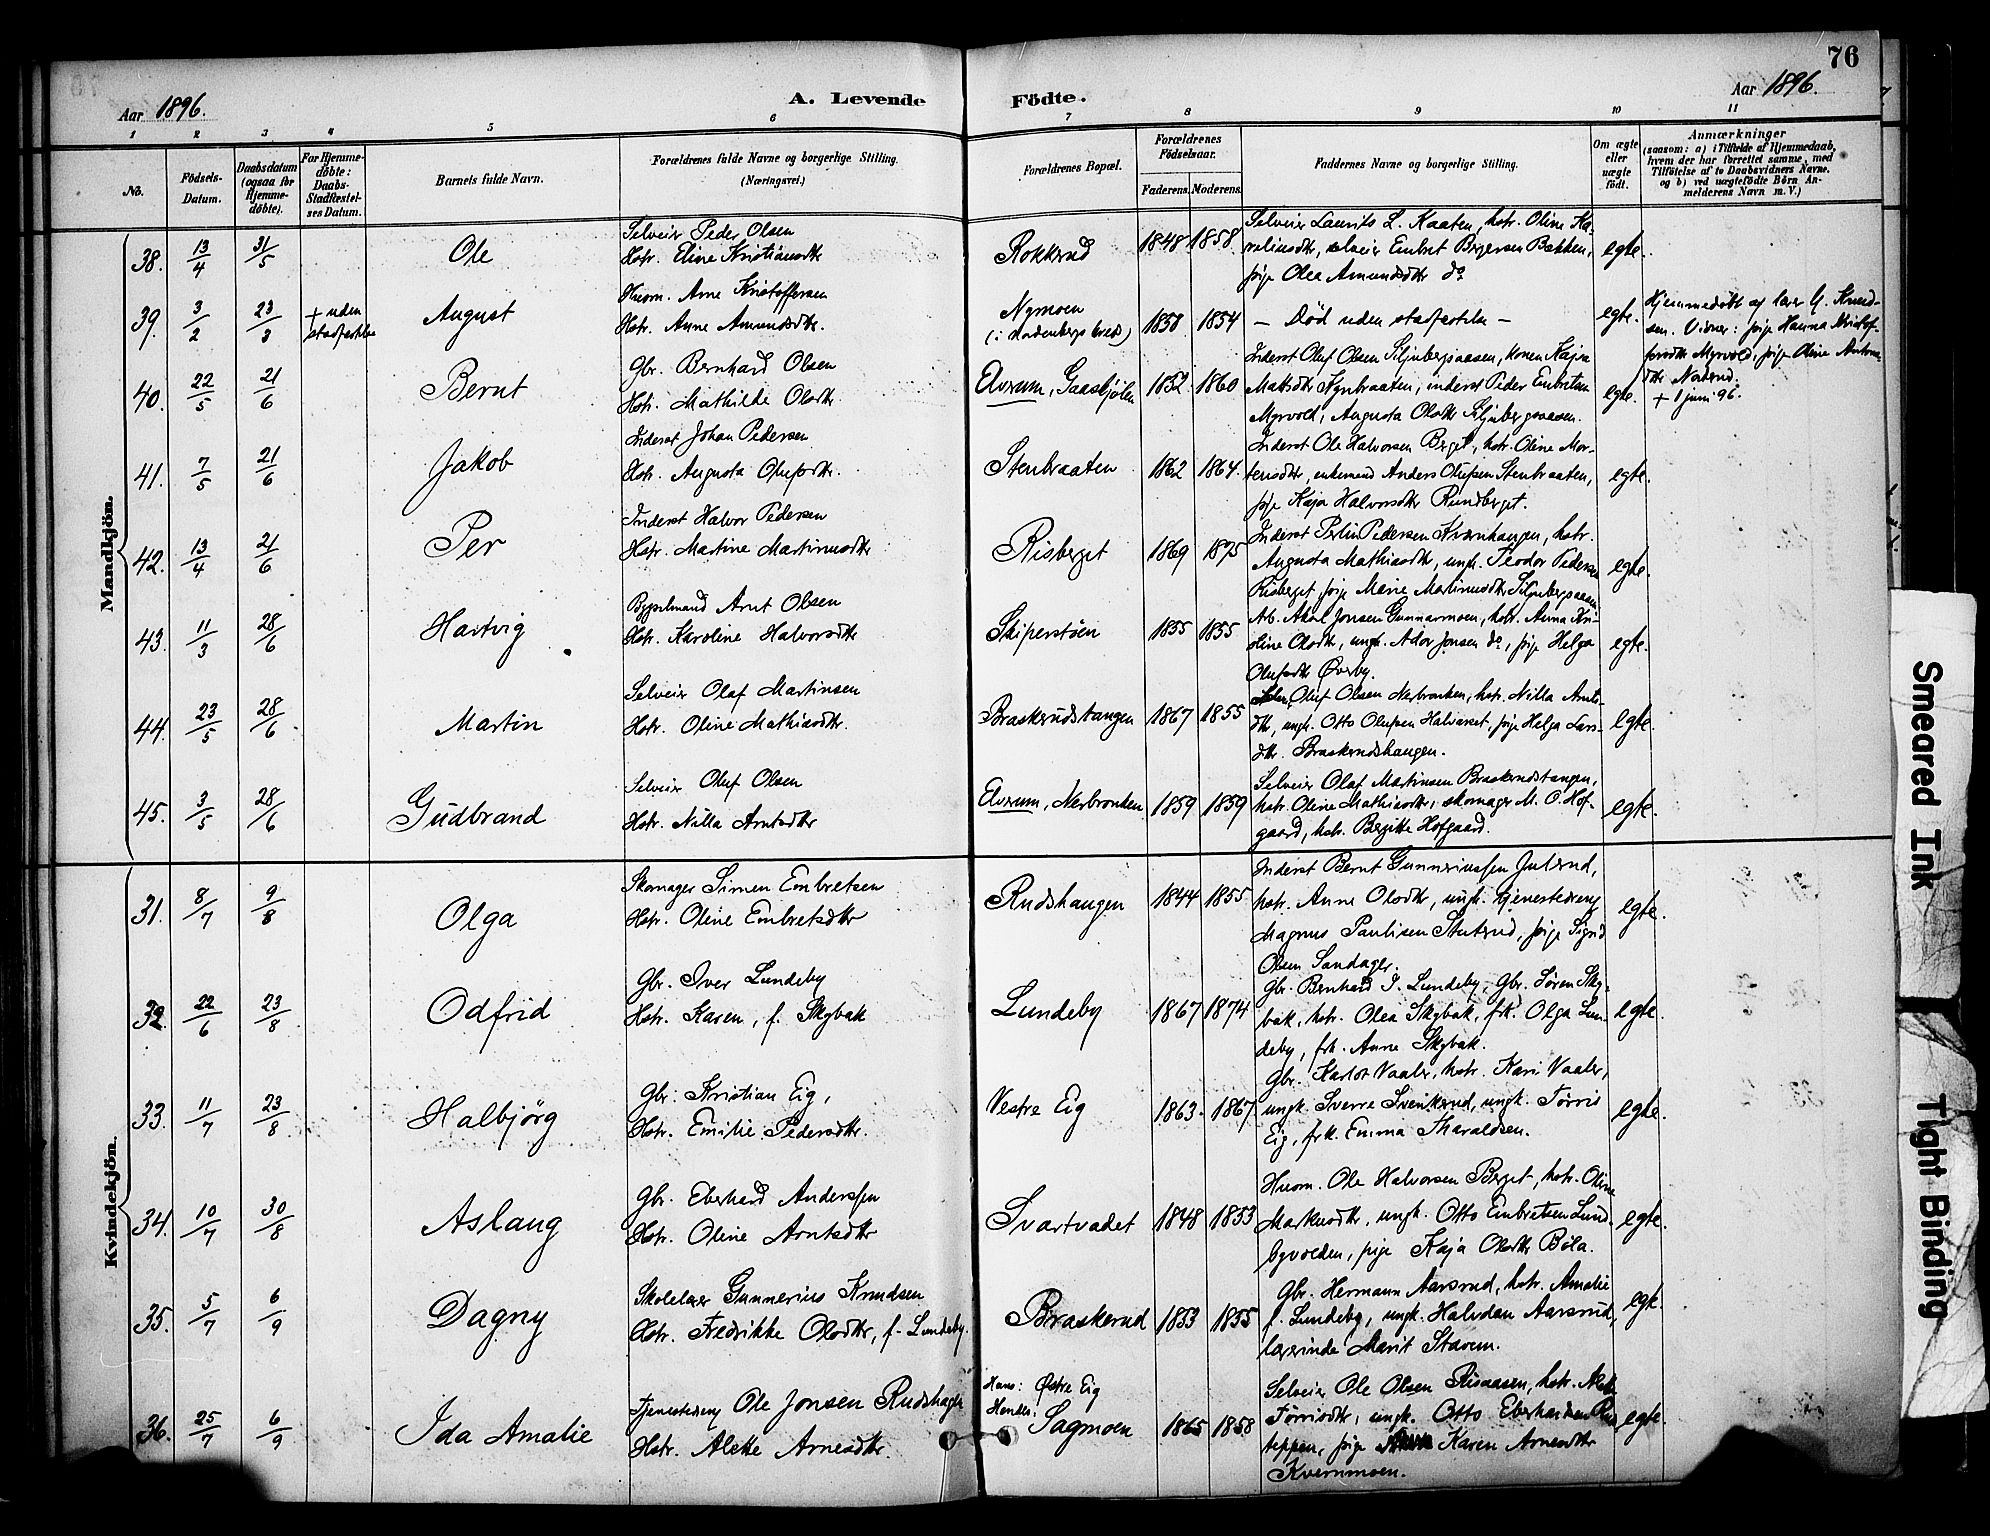 76
Aar 1896.
A. Levende Födte.
Aar 1896.
1 2 3 4 5 6 7 8 9 10 11
No.
Födsels-
Datum.
Daabsdatum
(ogsaa for
Hjemme-
döbte).
For Hjemme-
döbte:
Daabs-
Stadfæstel-
ses Datum.
Barnets fulde Navn.
Forældrenes fulde Navne og borgerlige Stilling.
(Næringsvei.)
Forældrenes Bopæl.
Forældrenes
Födselsaar.
Faderens. Moderens.
Faddernes Navne og borgerlige Stilling.
Om ægte
eller
uægte
födt.
Anmærkninger
(saasom: a) i Tilfælde af Hjemmedaab,
hvem der har forrettet samme, med
Tilföielse af to Daabsvidners Navne,
og b) ved uægtefödte Börn An-
melderens Navn m. V.)
Mandkjön.
38. 13/4 31/5 Ole
Selveier Peder Olsen
Hstr. Eline Kristiansdtr
Rokkerud 1848 1858
Selveier Laurits L. Kaaten, hstr. Oline Ka-
relinsdtr, selveier Embret Birgersen Bakken,
pige Olea Amundsdtr do
egte.
39. 3/2 23/3 + uden
stadfæstelse
August
Husm. Arne Kristoffersen
Hstr. Anne Amundsdtr.
Nymoen
1858 1854
— Död uden stadfæstelse —
egte.
Hjemmedöbt af lærer G. Knud-
sen. Vidner: pige Hanna Kristof-
fersdtr Myrvold, pige Oline Anton-
dtr
+ 1 juni 96.
40. 22/5 21/6 Bernt
Gbr. Bernhard Olsen
Hstr. Mathilde Olsdtr
Elverum, Gaasbjölen 1852 1860
Inderst Oluf Olsen Siljubergsaasen, konen Kajsa
Matsdtr Kynbraaten, inderst Peder Embretsen
Myrvold, Augusta Olsdtr Siljubergsaasen.
egte.
41. 7/5 21/6 Jakob
Inderst Johan Pedersen
Hstr. Augusta Olufsdtr.
Stenbraaten 1862 1864
Inderst Ole Halvorsen Berget, hstr. Oline Mar-
tensdtr, enkemand Anders Olufsen Stenbraaten,
pige Kaja Halvorsdtr Rundberget.
egte.
42. 13/4 21/6 Per
Inderst Halvor Pedersen
Hstr. Martine Martinusdtr
Risberget 1869 1875
Inderst Petter Pedersen Kvernhaugen, hstr.
Augusta Mathisdtr, ungk. Teodor Pedersen
Risberget, pige Marie Martinusdtr Siljubergsaasen
egte.
43. 11/3 28/6 Hartvig
Bygselmand Arnt Olsen
Hstr. Karoline Halvorsdtr
Skiperstöen 1855 1855
Arb. Aksel Jonsen Gunnarmoen, hstr. Anna Ka-
oline Olsdtr, ungk. Ador Jonsen do, pige Helga
Olufsdtr Överby.
egte.
44. 23/5 28/6 Martin
Selveier Olaf Martinsen
Hstr. Oline Mathisdtr.
Braskerudstangen 1867 1855
Oluf Olsen Nerbronken, hstr. Nilla Arnts-
dtr, ungk. Otto Olufsen Halvarset, pige Helga Lars-
dtr. Braskerudshaugen.
egte.
45. 3/5 28/6 Gudbrand
Selveier Oluf Olsen
Hstr. Nilla Arntsdtr
Elverum, Nerbronken 1859 1859
Selveier Olaf Martinsen Braskerudstangen,
hstr. Oline Mathisdtr, skomager M. O. Hof-
gaard, hstr. Birgitte Hofgaard.
egte.
Kvindekjön.
31. 8/7 9/8 Olga
Skomager Simen Embretsen
Hstr. Oline Embretsdtr
Rudshaugen 1844 1855
Inderst Bernt Gunneriussen Julsrud,
hstr. Anne Olsdtr, ungk. tjenestedreng
Magnus Paulsen Stutrud, pige Sigrid
Olsen Sandager.
egte.
32. 22/6 23/8 Odfrid
Gbr. Iver Lundeby
Hstr. Karen, f. Skybak
Lundeby 1867 1874
Gbr. Bernhard I. Lundeby, Gbr. Sören Sky-
bak, hstr. Olea Skybak, frk. Olga Lun-
deby, frk. Anne Skybak.
egte.
33. 11/7 23/8 Halbjörg
Gbr. Kristian Eig,
Hstr. Emilie Pedersdtr.
Vestre Eig 1863 1867
Gbr. Karlot Vaaler, hstr. Kari Vaaler,
ungk. Sverre Svenkerud, ungk. Törris
Eig, frk. Emma Tharaldsen.
egte.
34. 10/7 30/8 Aslaug
Gbr. Eberhard Anderssen
Hstr. Oline Arntsdtr
Svartvadet 1848 1853
Husm. Ole Halvorsen Berget, hstr. Oline
Markusdtr, ungk. Otto Embretsen Lund-
byvolden, pige Kaja Olsdtr Böla.
egte.
35. 5/7 6/9 Dagny
Skolelærer Gunnerius Knudsen
Hstr. Fredrikke Olsdtr, f. Lundeby.
Braskerud 1853 1855
Gbr. Hermann Aarsrud, hstr. Amalie
f. Lundeby, ungk. Halvdan Aarsrud,
lærerinde Marit Stavem.
egte.
36. 25/7 6/9 Ida Amalie
Tjenestedreng Ole Jonsen Rudshagen
Hstr. Alette Arnesdtr.
Hans: Östre Eig
Hendes: Sagmoen 1865 1858
Selveier Ole Olsen Risaasen, hstr.
Törrisdtr, ungk. Otto Eberhardsen
teppen, pige Karen Arnesdtr
Kvernmoen.
egte.
Smeared Ink
Tight Binding